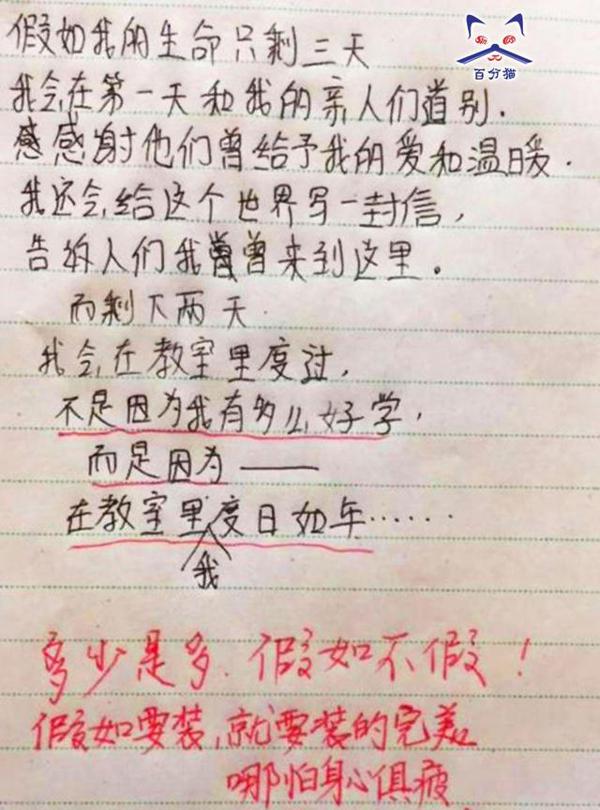 百分猫
假如我的生命只剩三天
我会在第一天和我的亲人们道别.
感感谢他们曾给予我的爱和温暖.
我还会给这个世界写一封信,
告诉人们我曾来到这里。
而剩下两天.
我会在教室里度过,
不是因为我有多么好学,
而是因为——
在教室里我度日如年……
多少是多.假如不假!
假如要装,就要装的完美
哪怕身心俱疲